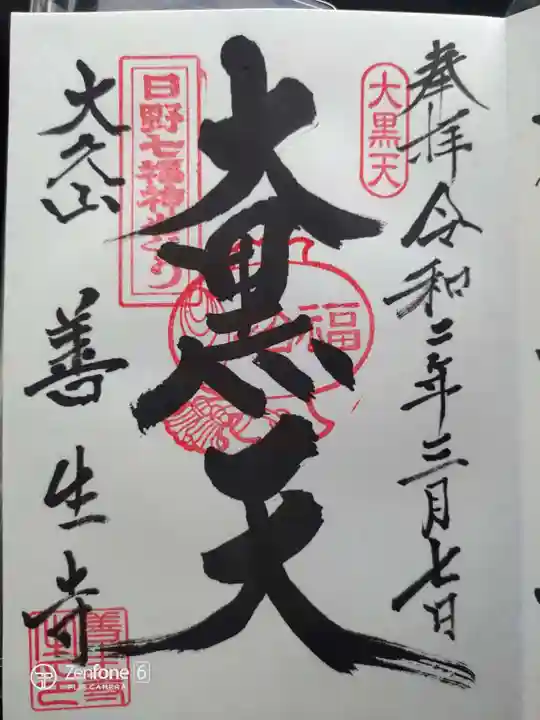 奉拝 令和二年三月七日
大黒天
大黒天
日野七福神めぐり
福
大久山 善生寺
Zenfone 6
PLUS CAMERA